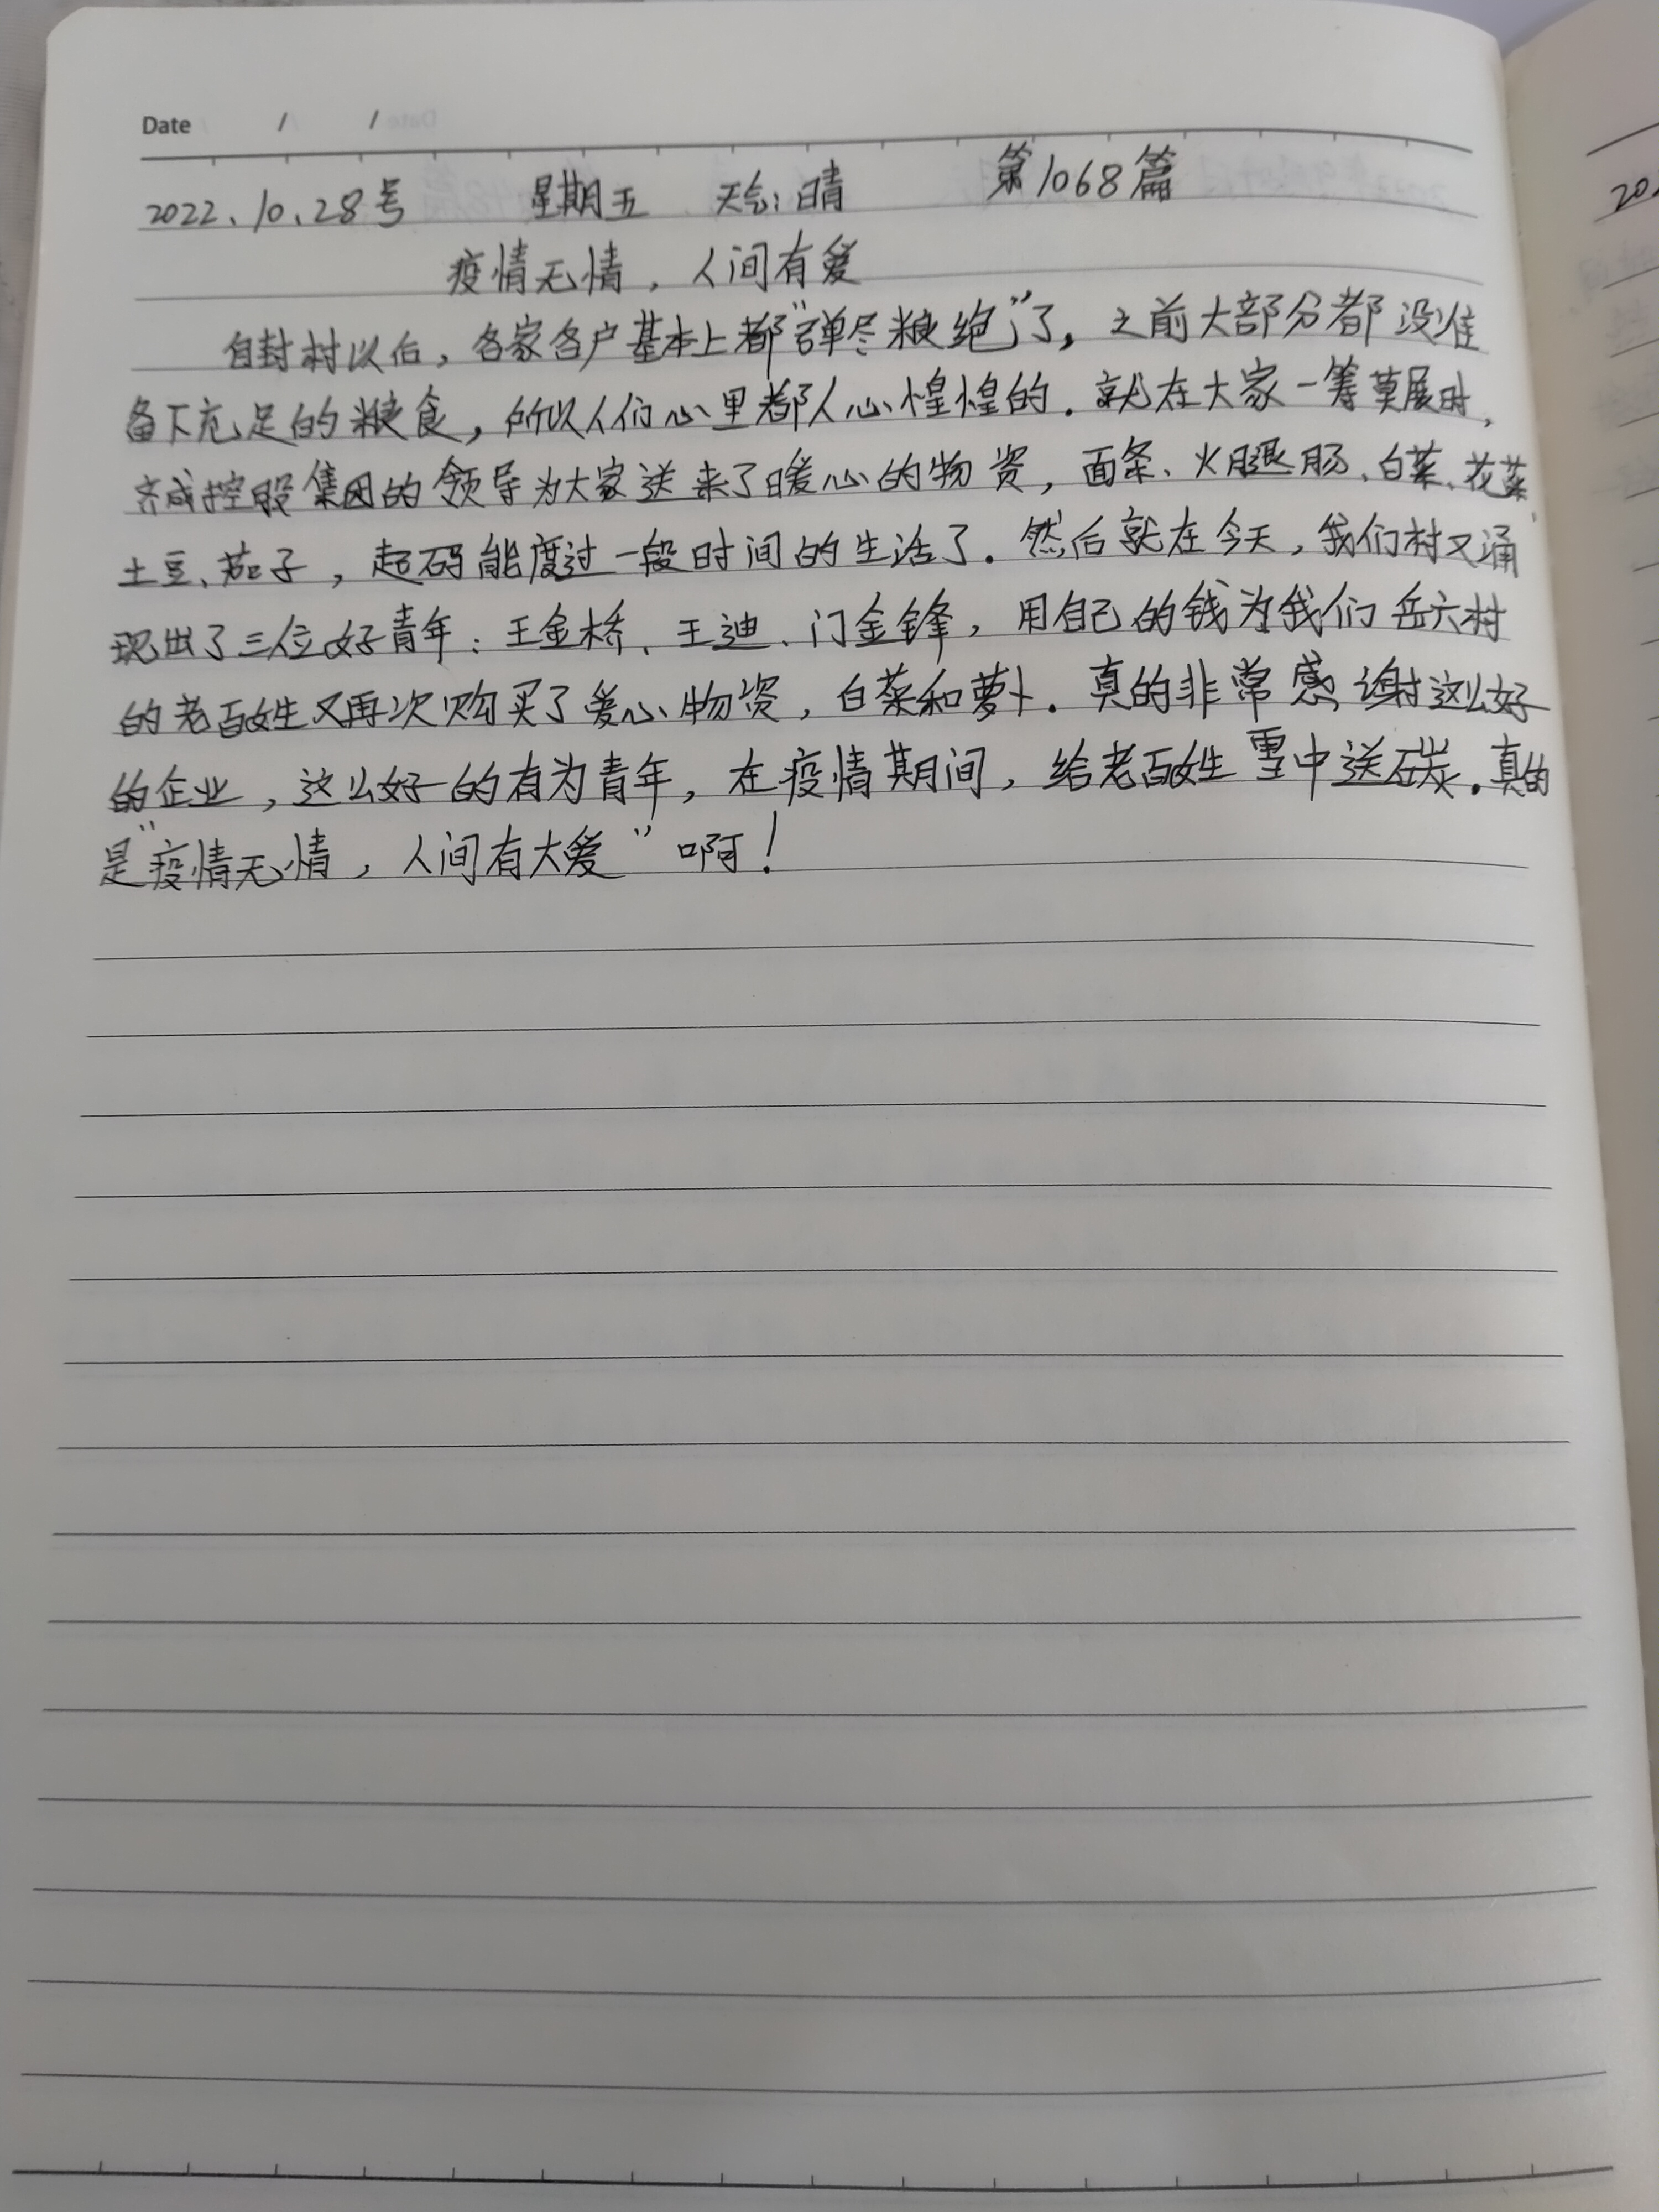 Date / /
2022.10.28号 星期五 天气:晴 第1068篇
疫情无情，人间有爱
自封村以后，各家各户基本上都“弹尽粮绝”了，之前大部分都没准
备下充足的粮食，所以人们心里都人心惶惶的．就在大家一筹莫展时，
齐成控股集团的领导为大家送来了暖心的物资，面条、火腿肠、白菜、花菜、
土豆、茄子，起码能度过一段时间的生活了．然后就在今天，我们村又涌
现出了三位好青年：王金桥、王迪、门金锋，用自己的钱为我们岳六村
的老百姓又再次购买了爱心物资，白菜和萝卜．真的非常感谢这么好
的企业，这么好的有为青年，在疫情期间，给老百姓雪中送碳．真的
是“疫情无情，人间有大爱”啊！
20